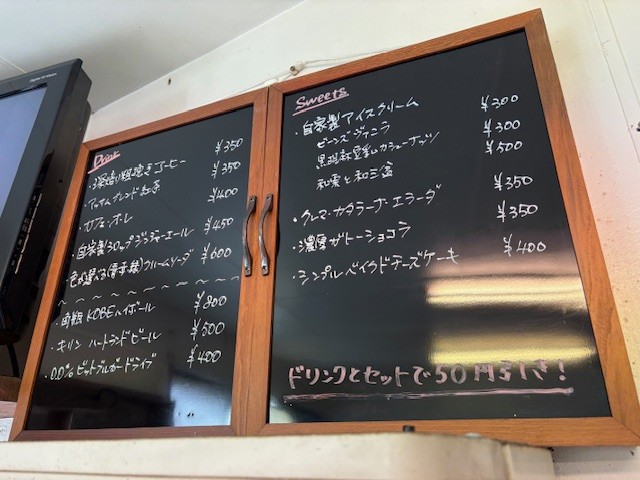 Drink
・深煎り粗挽きコーヒー ¥350
・アッサムブレンド紅茶 ¥350
・カフェ・オーレ ¥400
・自家製シロップジンジャーエール ¥450
・色が選べる(青・赤・緑)クリームソーダ ¥600
〜〜〜〜〜〜〜〜〜〜
・角瓶 KOBEハイボール ¥800
・キリン ハートランドビール ¥500
・0.0%ビットブルガードライブ ¥400
Sweets
・自家製アイスクリーム
ビーンズバニラ ¥300
黒胡麻豆乳カシューナッツ ¥300
和栗と和三盆 ¥500
・クレマ・カタラーナ・エラーダ ¥350
・濃厚ガトーショコラ ¥350
・シンプルベイクドチーズケーキ ¥400
ドリンクとセットで50円引き!